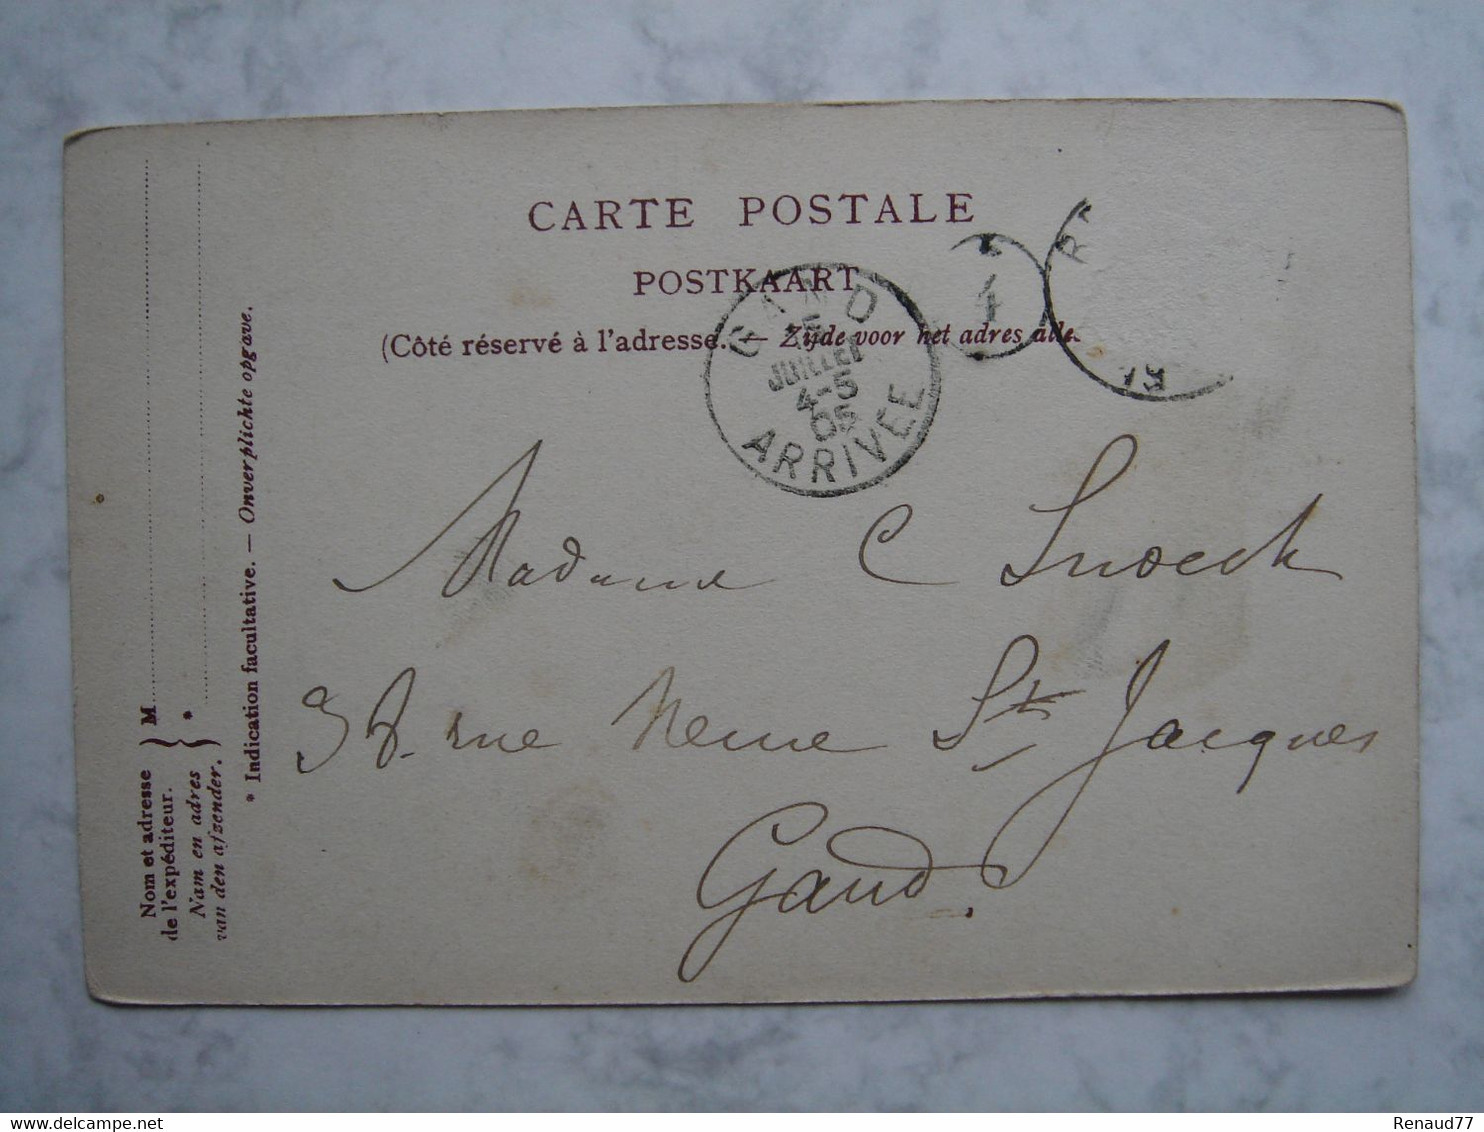 CARTE POSTALE
POSTKAART
(Côté réservé à l'adresse. — Zijde voor het adres alle
GAND
JUILLET
4-5
05
ARRIVEE
4
Madame C Snoeck
38 rue Neuve St Jacques
Gand
Nom et adresse
de l'expéditeur.
Nam en adres
van den afzender.
M
*
* Indication facultative. — Onverplichte opgave.
Renaud77